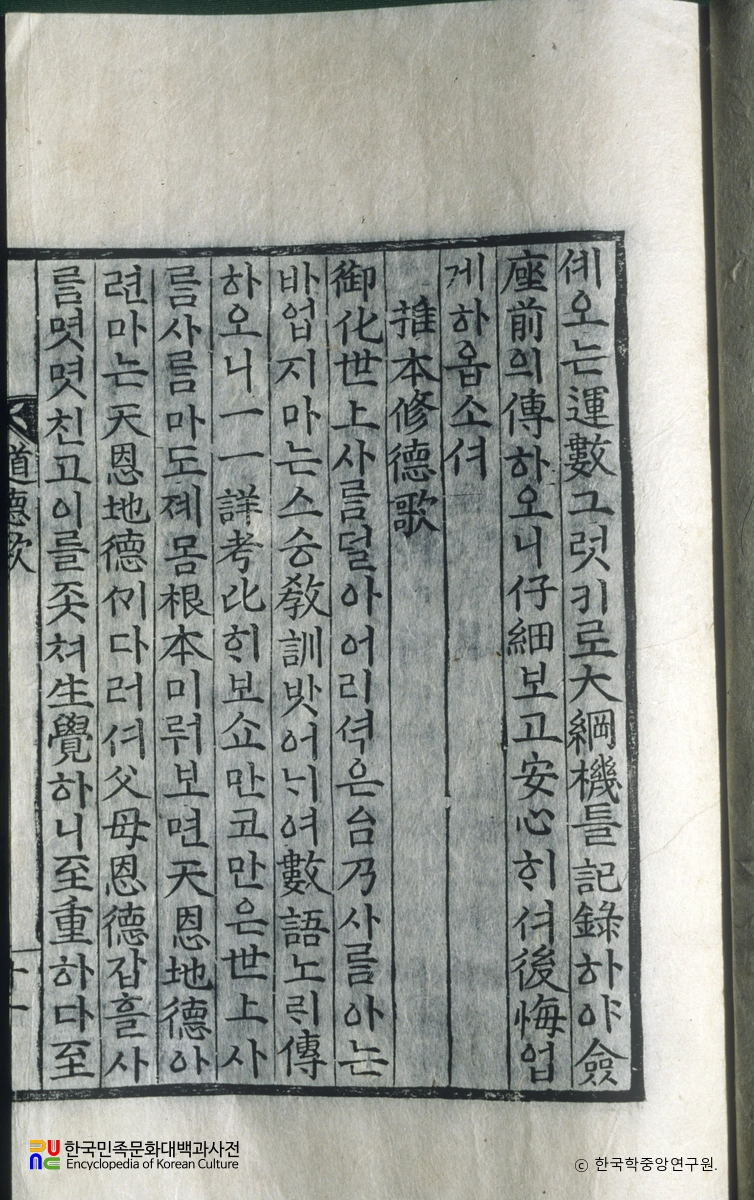 셰오는運數그럿키로大綱機틀記錄하야僉
座前의傳하오니仔細보고安心히셔後悔업
게하옵소셔
推本修德歌
御化世上사름덜아어리셕은台乃사름아는
바업지마는스승敎訓밧어ᄂᆡ여數語노ᄅᆡ傳
하오니一一詳考比ᄒᆡ보쇼만코만은世上사
름사름마도졔몸根本미뤄보면天恩地德아
련마는天恩地德ᄭᅵ다러셔父母恩德갑흘사
름몃몃친고이를좃쳐生覺하니至重하다至
道德歌
十一
한국민족문화대백과사전
Encyclopedia of Korean Culture
© 한국학중앙연구원.